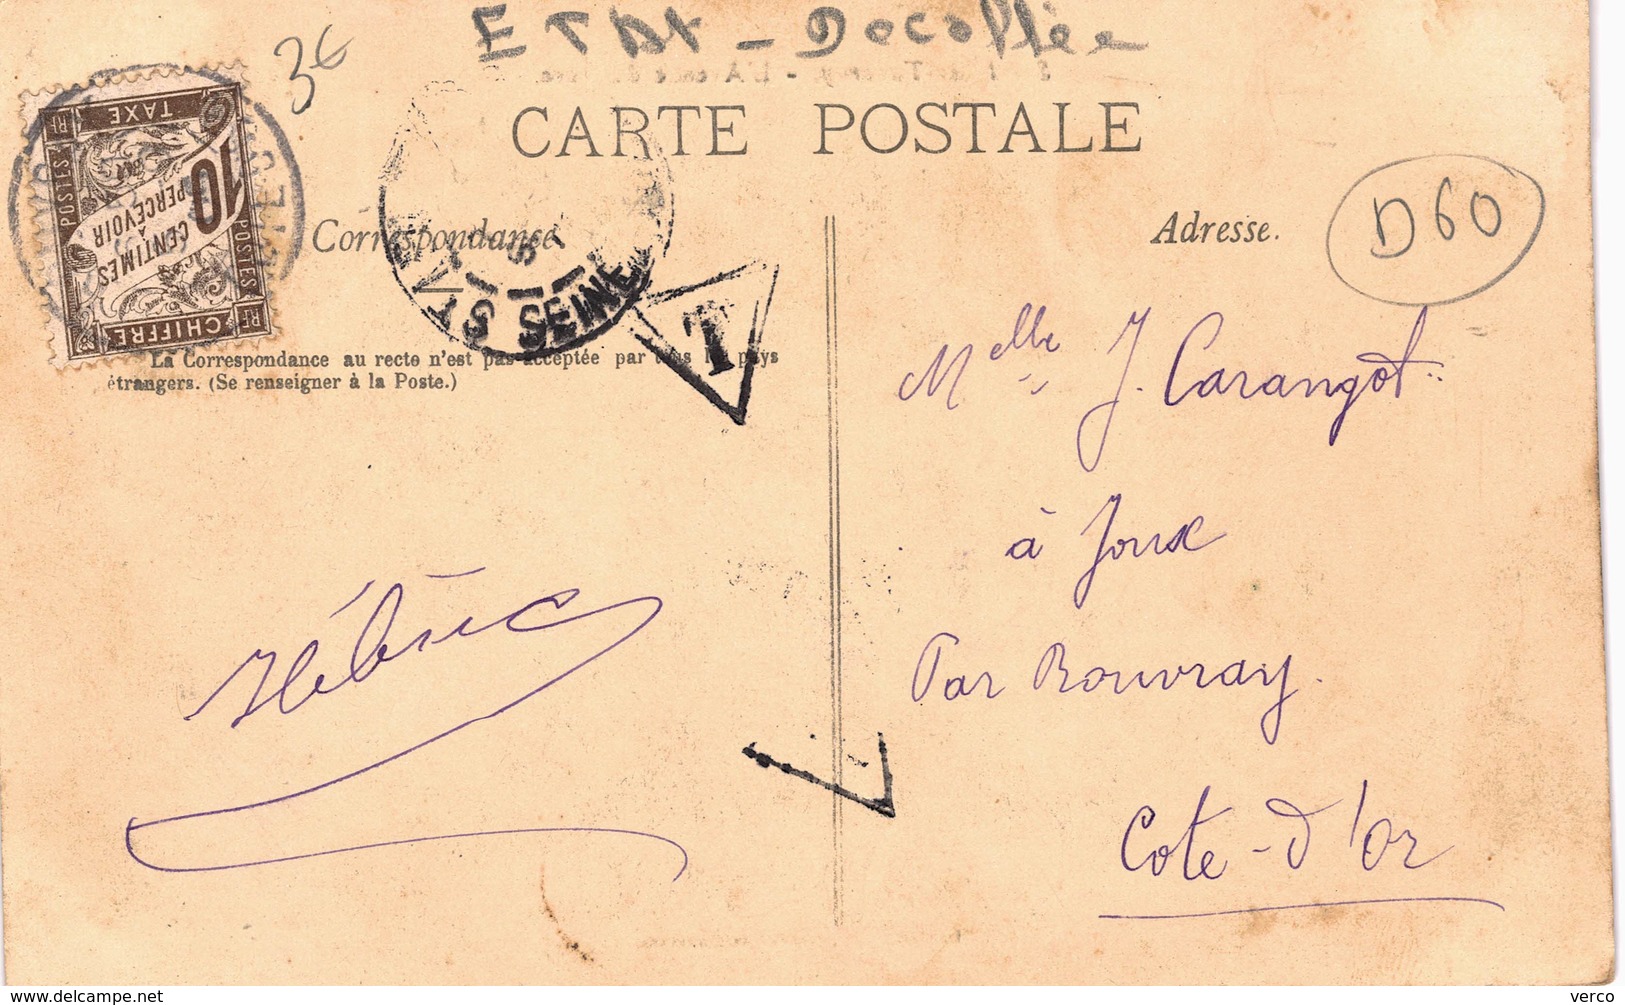 ETAT - Decollée
3€
CARTE POSTALE
TAXE
RF
POSTES
10
CENTIMES
À
PERCEVOIR
POSTES
CHIFFRE
RF
Correspondance
Adresse.
D60
SEINE
T
La Correspondance au recto n'est pas acceptée par tous les pays
étrangers. (Se renseigner à la Poste.)
Melle J. Carangot
à Joux
Par Rouvray.
Cote-d'Or
delcampe.net
verco